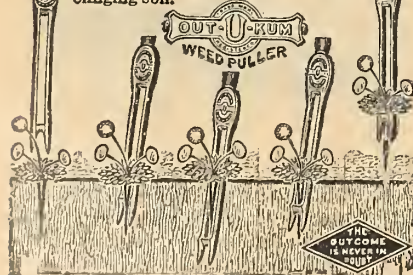 clinging soil.
OUT-U-KUM
WEED PULLER
THE
OUTCOME
IS NEVER IN
DOUBT